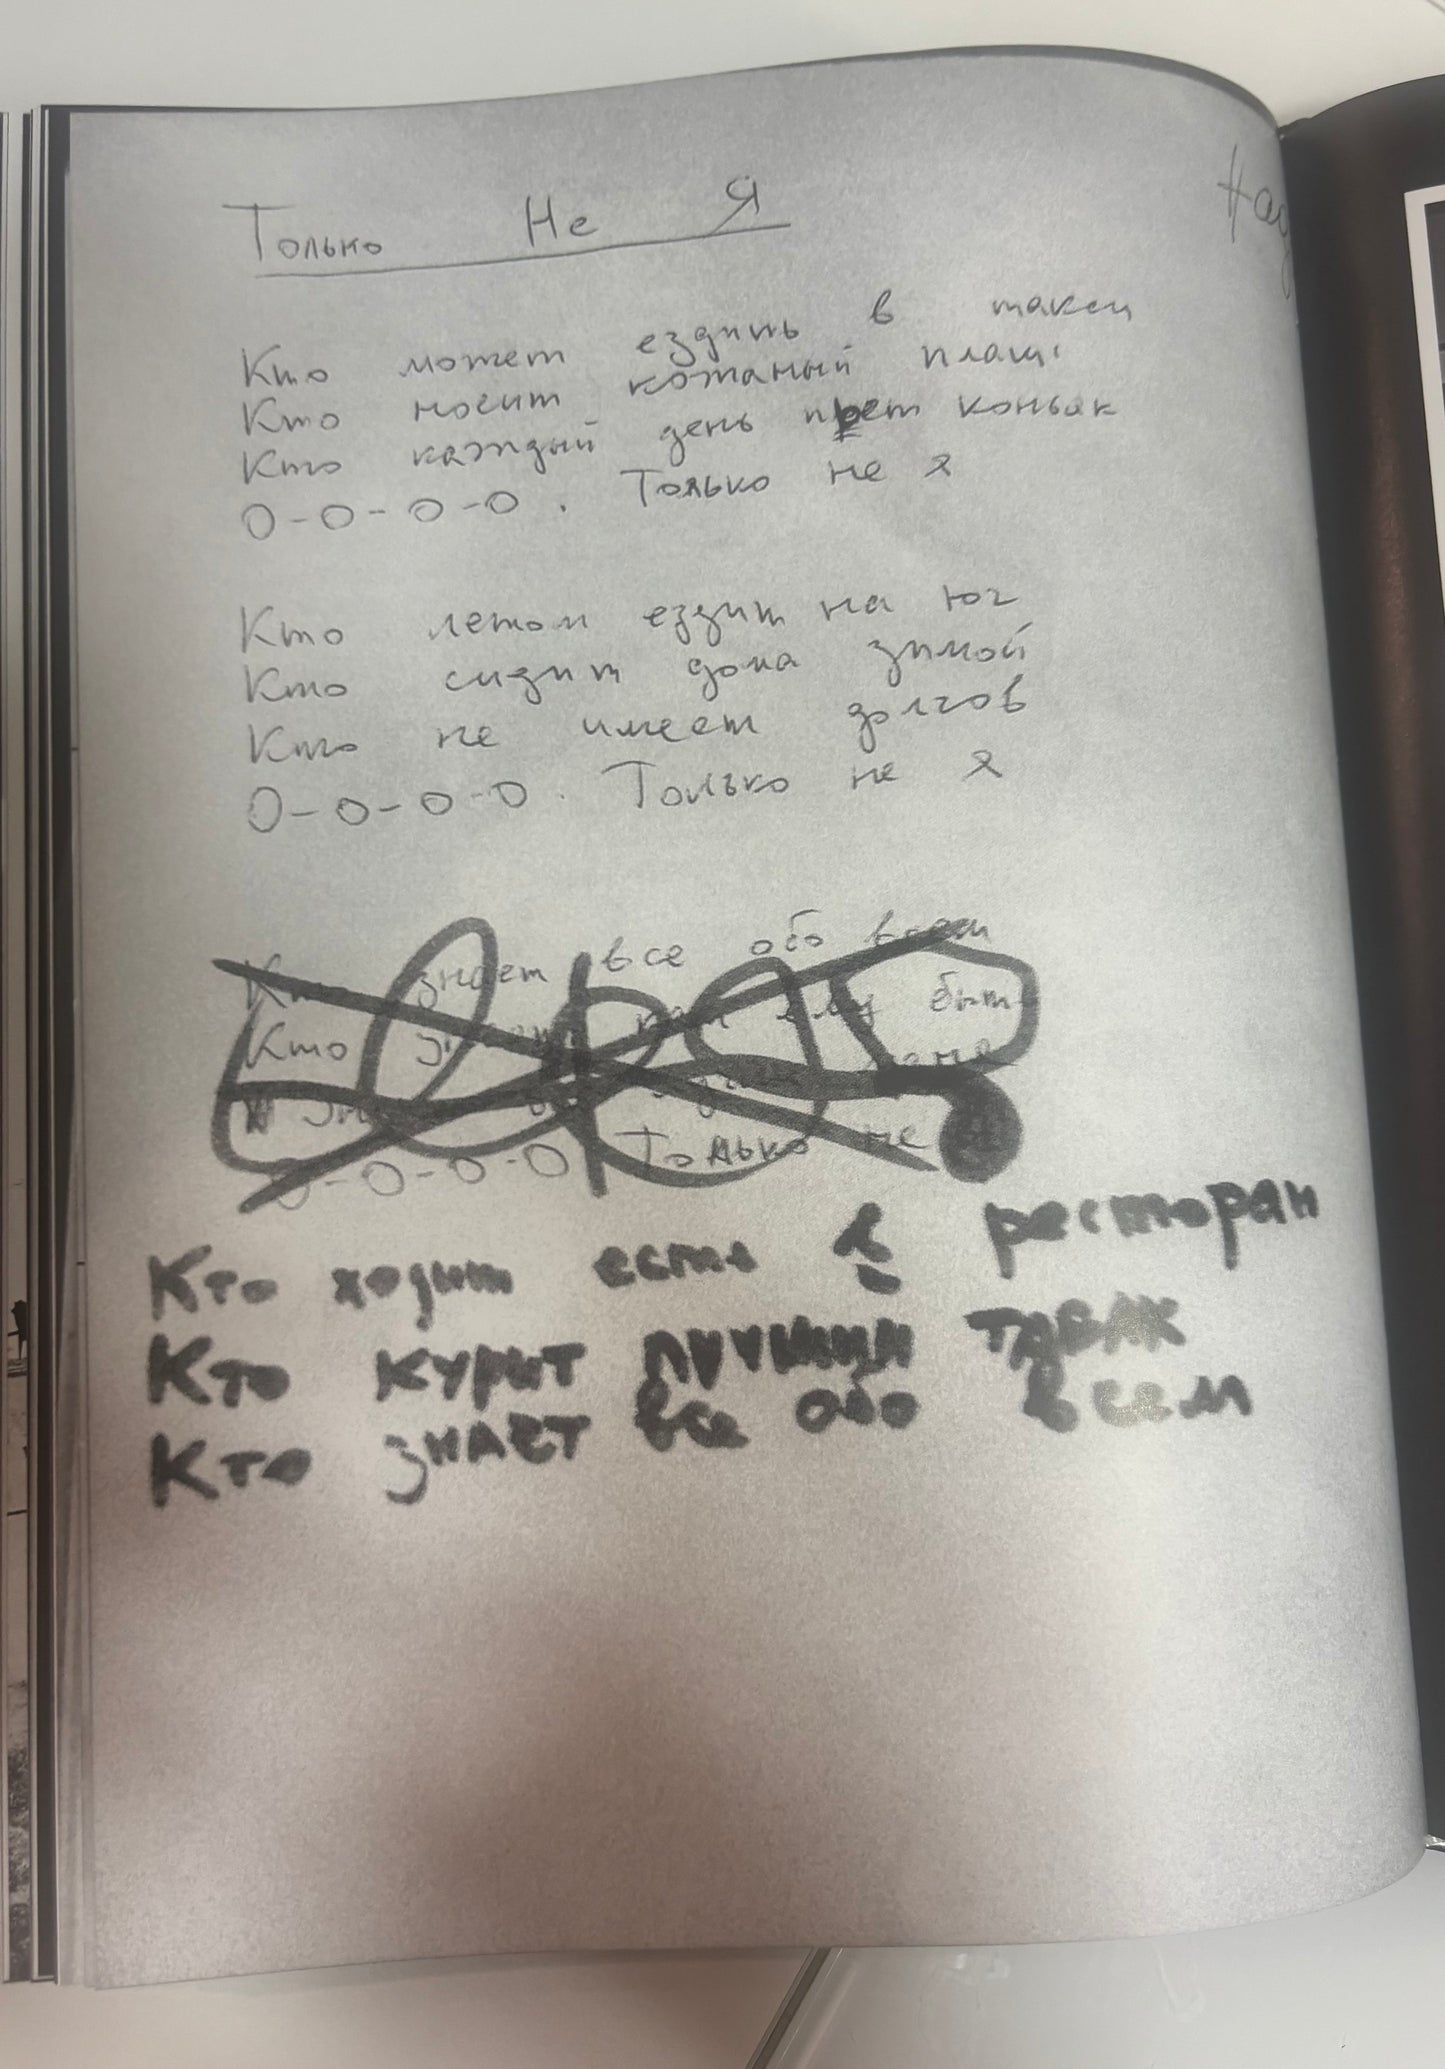 Только Не Я
Кто может ездить в такси
Кто носит кожаный плащ
Кто каждый день пьет коньяк
О-О-О-О. Только не я
Кто летом ездит на юг
Кто сидит дома зимой
Кто не имеет долгов
О-О-О-О. Только не я
Кто знает все обо всем
Кто знает как ему быть
О-О-О-О Только не я
Кто ходит есть в ресторан
Кто курит лучший табак
Кто знает все обо всем